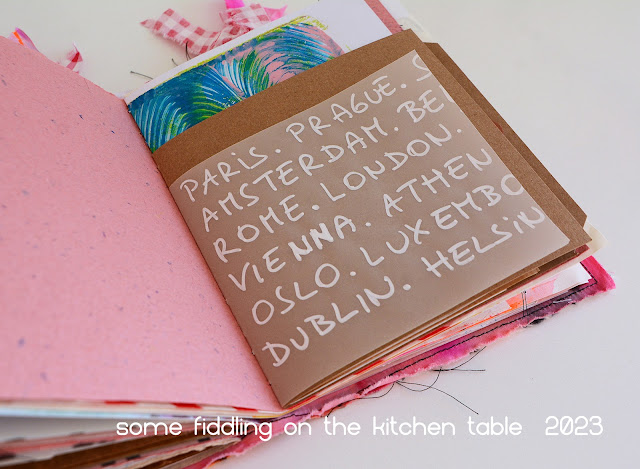 PARIS. PRAGUE. S
AMSTERDAM. BE
ROME. LONDON.
VIENNA. ATHEN
OSLO. LUXEMBO
DUBLIN. HELSIN
some fiddling on the kitchen table 2023